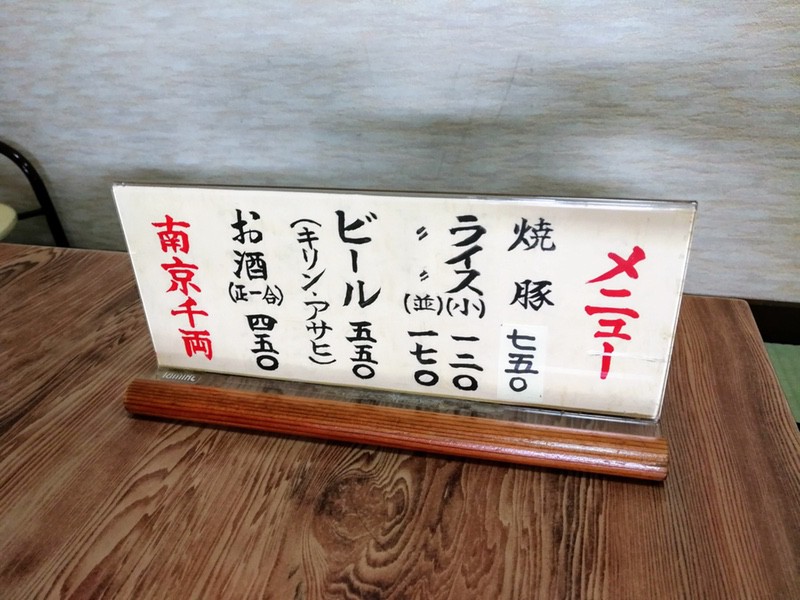 メニュー
焼豚 七五〇
ライス(小) 一二〇
〃 〃 (並) 一七〇
ビール 五五〇
(キリン・アサヒ)
お酒(正一合) 四五〇
南京千両